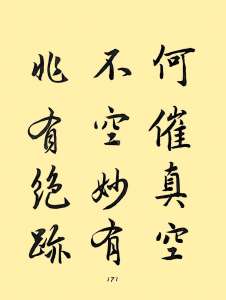 何催真空
不空妙有
非有绝跡
171